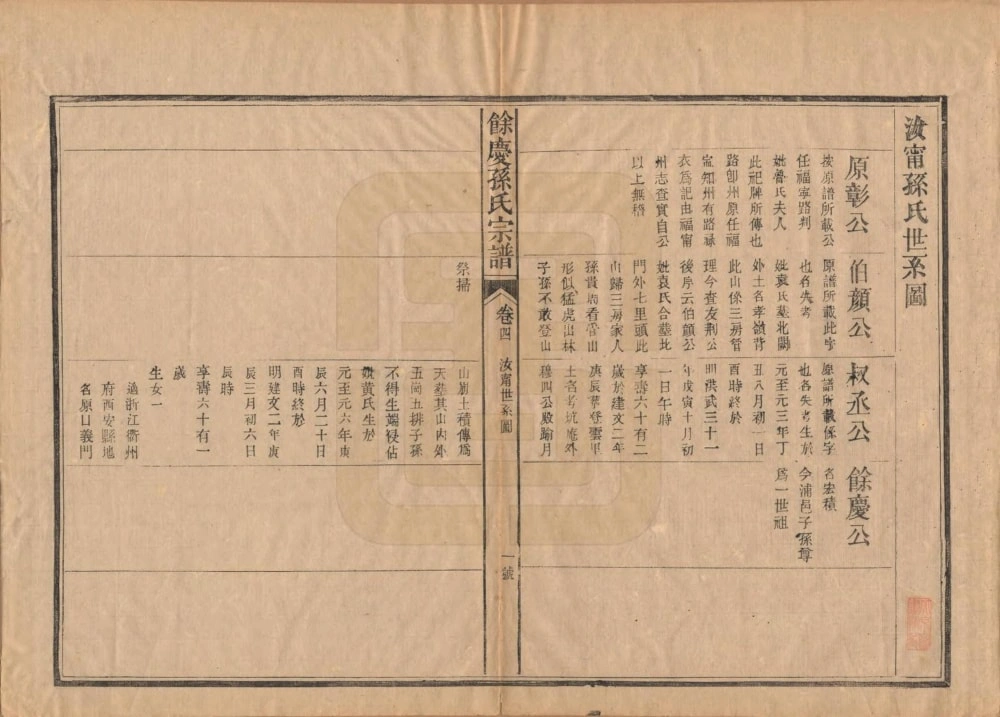 汝甯孫氏世系圖
原彰公
按原譜所載公
任福寧路判
妣魯氏夫人
此祀牌所傳也
路卽州原任福
甯知州有路祿
衣爲記由福甯
州志查實自公
以上無稽
伯顏公
原譜所載此字
也名失考
妣袁氏墓北關
外土名孝嶺背
此山係三房管
理今查友荆公
後序云伯顏公
妣袁氏合墓北
門外七里頭此
山歸三房家人
孫貴周看管山
形似猛虎出林
子孫不敢登山
祭掃
叔丞公
原譜所載係字
也名失考生於
元至元三年丁
丑八月初一日
酉時終於
明洪武三十一
年戊寅十月初
一日午時
享壽六十有二
歲於建文二年
庚辰葬登雲甲
土名考坑庵外
穆四公殿踰月
山崩土積傳爲
天墓其山內外
五崗五排子孫
不得生端侵佔
娶黃氏生於
元至元六年庚
辰六月二十日
酉時終於
明建文二年庚
辰三月初六日
辰時
享壽六十有一
歲
生女一
適浙江衢州
府西安縣地
名原口義門
餘慶公
名宏積
今浦邑子孫尊
爲一世祖
餘慶孫氏宗譜
卷四
汝甯世系圖
一號